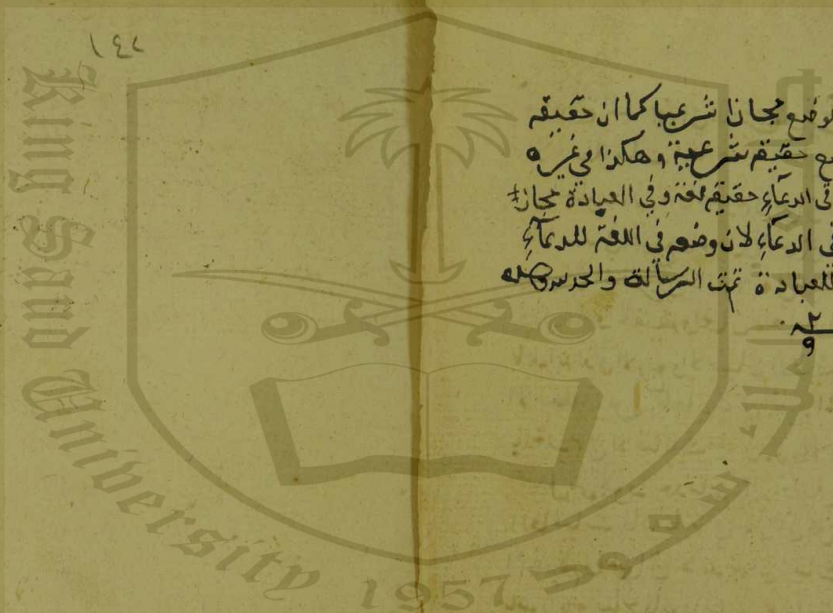 ١٤٢
لوضع مجازا شرعيا كما ان حقيقه
ع حقيقه شرعية وهكذا في غيره
فى الدعآءِ حقيقه لغة وفي العبادة مجاز
ى الدعآءِ لان وضعه في اللغة للدعآءِ
للعبادة تمت الرسالة والحمد لله وحده
King Saud University 1957